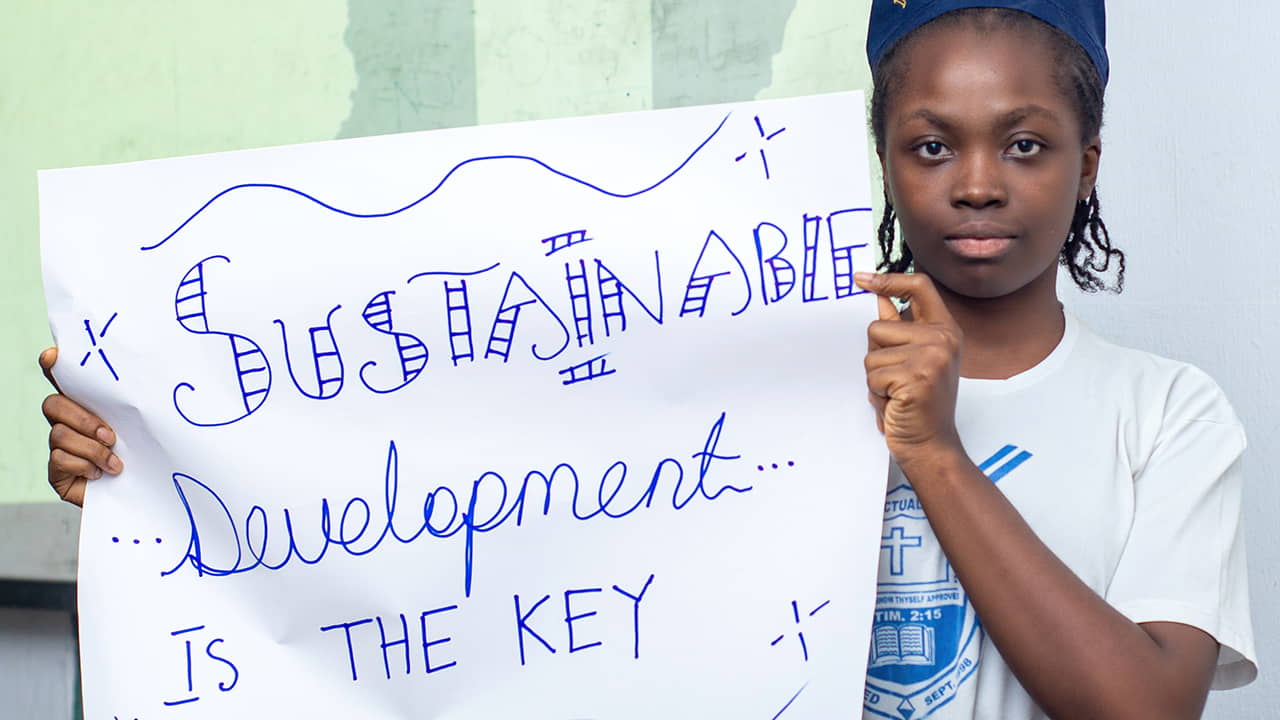 SUSTAINABLE
...Development...
IS THE KEY
SHOW THYSELF APPROVED
TIM. 2:15
SEPT.